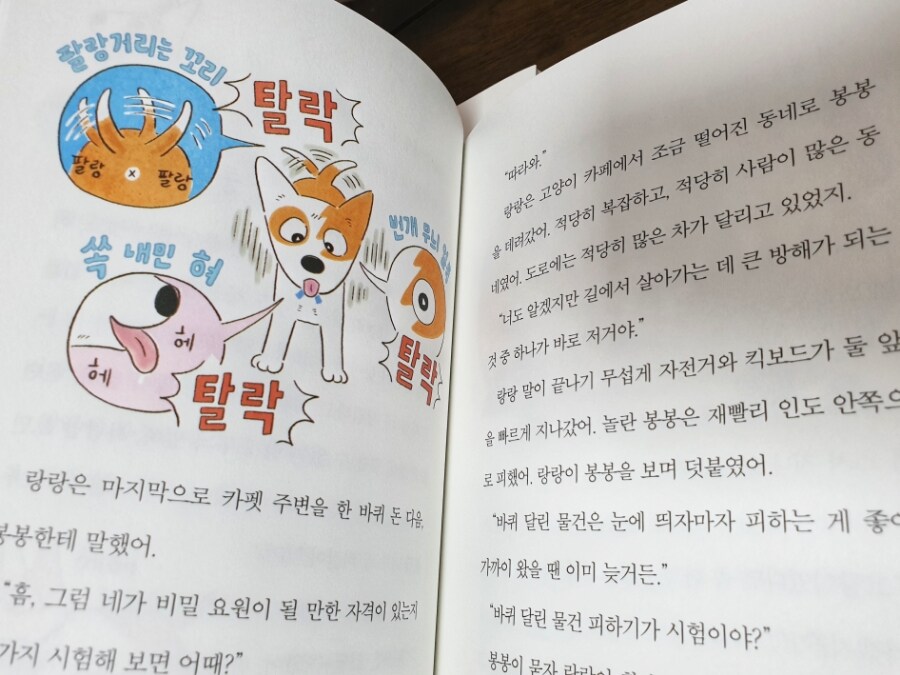 팔랑거리는 꼬리
탈락
팔랑 팔랑
쏙 내민 혀
헤 헤
탈락
번개 무늬
탈락
랑랑은 마지막으로 카펫 주변을 한 바퀴 돈 다음,
봉봉한테 말했어.
"흠, 그럼 네가 비밀 요원이 될 만한 자격이 있는지
가지 시험해 보면 어때?"
"따라와."
랑랑은 고양이 카페에서 조금 떨어진 동네로 봉봉
을 데려갔어. 적당히 복잡하고, 적당히 사람이 많은 동
네였어. 도로에는 적당히 많은 차가 달리고 있었지.
"너도 알겠지만 길에서 살아가는 데 큰 방해가 되는
것 중 하나가 바로 저거야."
랑랑 말이 끝나기 무섭게 자전거와 킥보드가 둘 앞
을 빠르게 지나갔어. 놀란 봉봉은 재빨리 인도 안쪽으
로 피했어. 랑랑이 봉봉을 보며 덧붙였어.
"바퀴 달린 물건은 눈에 띄자마자 피하는 게 좋아
가까이 왔을 땐 이미 늦거든."
"바퀴 달린 물건 피하기가 시험이야?"
봉봉이 묻자 랑랑이